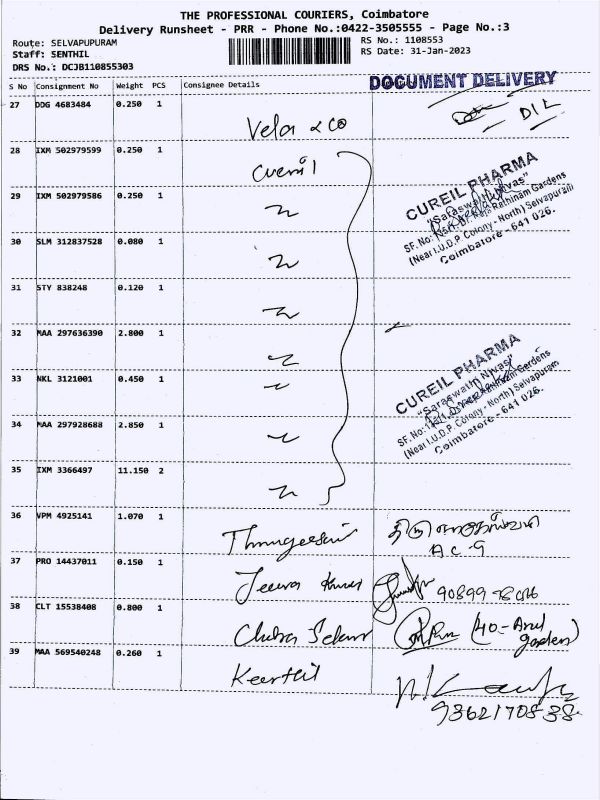 THE PROFESSIONAL COURIERS, Coimbatore
Delivery Runsheet - PRR - Phone No.:0422-3505555 - Page No.:3
Route: SELVAPUPURAM
RS No.: 1108553
Staff: SENTHIL
RS Date: 31-Jan-2023
DRS No.: DCJB110855303
DOCUMENT DELIVERY
S No Consignment No Weight PCS Consignee Details
27 DDG 4683484 0.250 1
Velar & Co
D/L
28 IXM 502979599 0.250 1
CUREIL PHARMA
"Saraswathi Nivas"
Rathinam Gardens
(Near I.U.D.P. Colony - North) Selvapuram
Coimbatore - 641 026.
29 IXM 502979586 0.250 1
30 SLM 312837528 0.080 1
31 STY 838248 0.120 1
32 MAA 297636390 2.800 1
33 NKL 3121001 0.450 1
CUREIL PHARMA
"Saraswathi Nivas"
Gardens
(Near I.U.D.P. Colony - North) Selvapuram
Coimbatore - 641 026.
34 MAA 297928688 2.850 1
35 IXM 3366497 11.150 2
36 VPM 4925141 1.070 1
A C G
37 PRO 14437011 0.150 1
Jeeva Kumar
38 CLT 15538408 0.800 1
(40 - Arul
garden)
39 MAA 569540248 0.260 1
Keerthil
9362170838